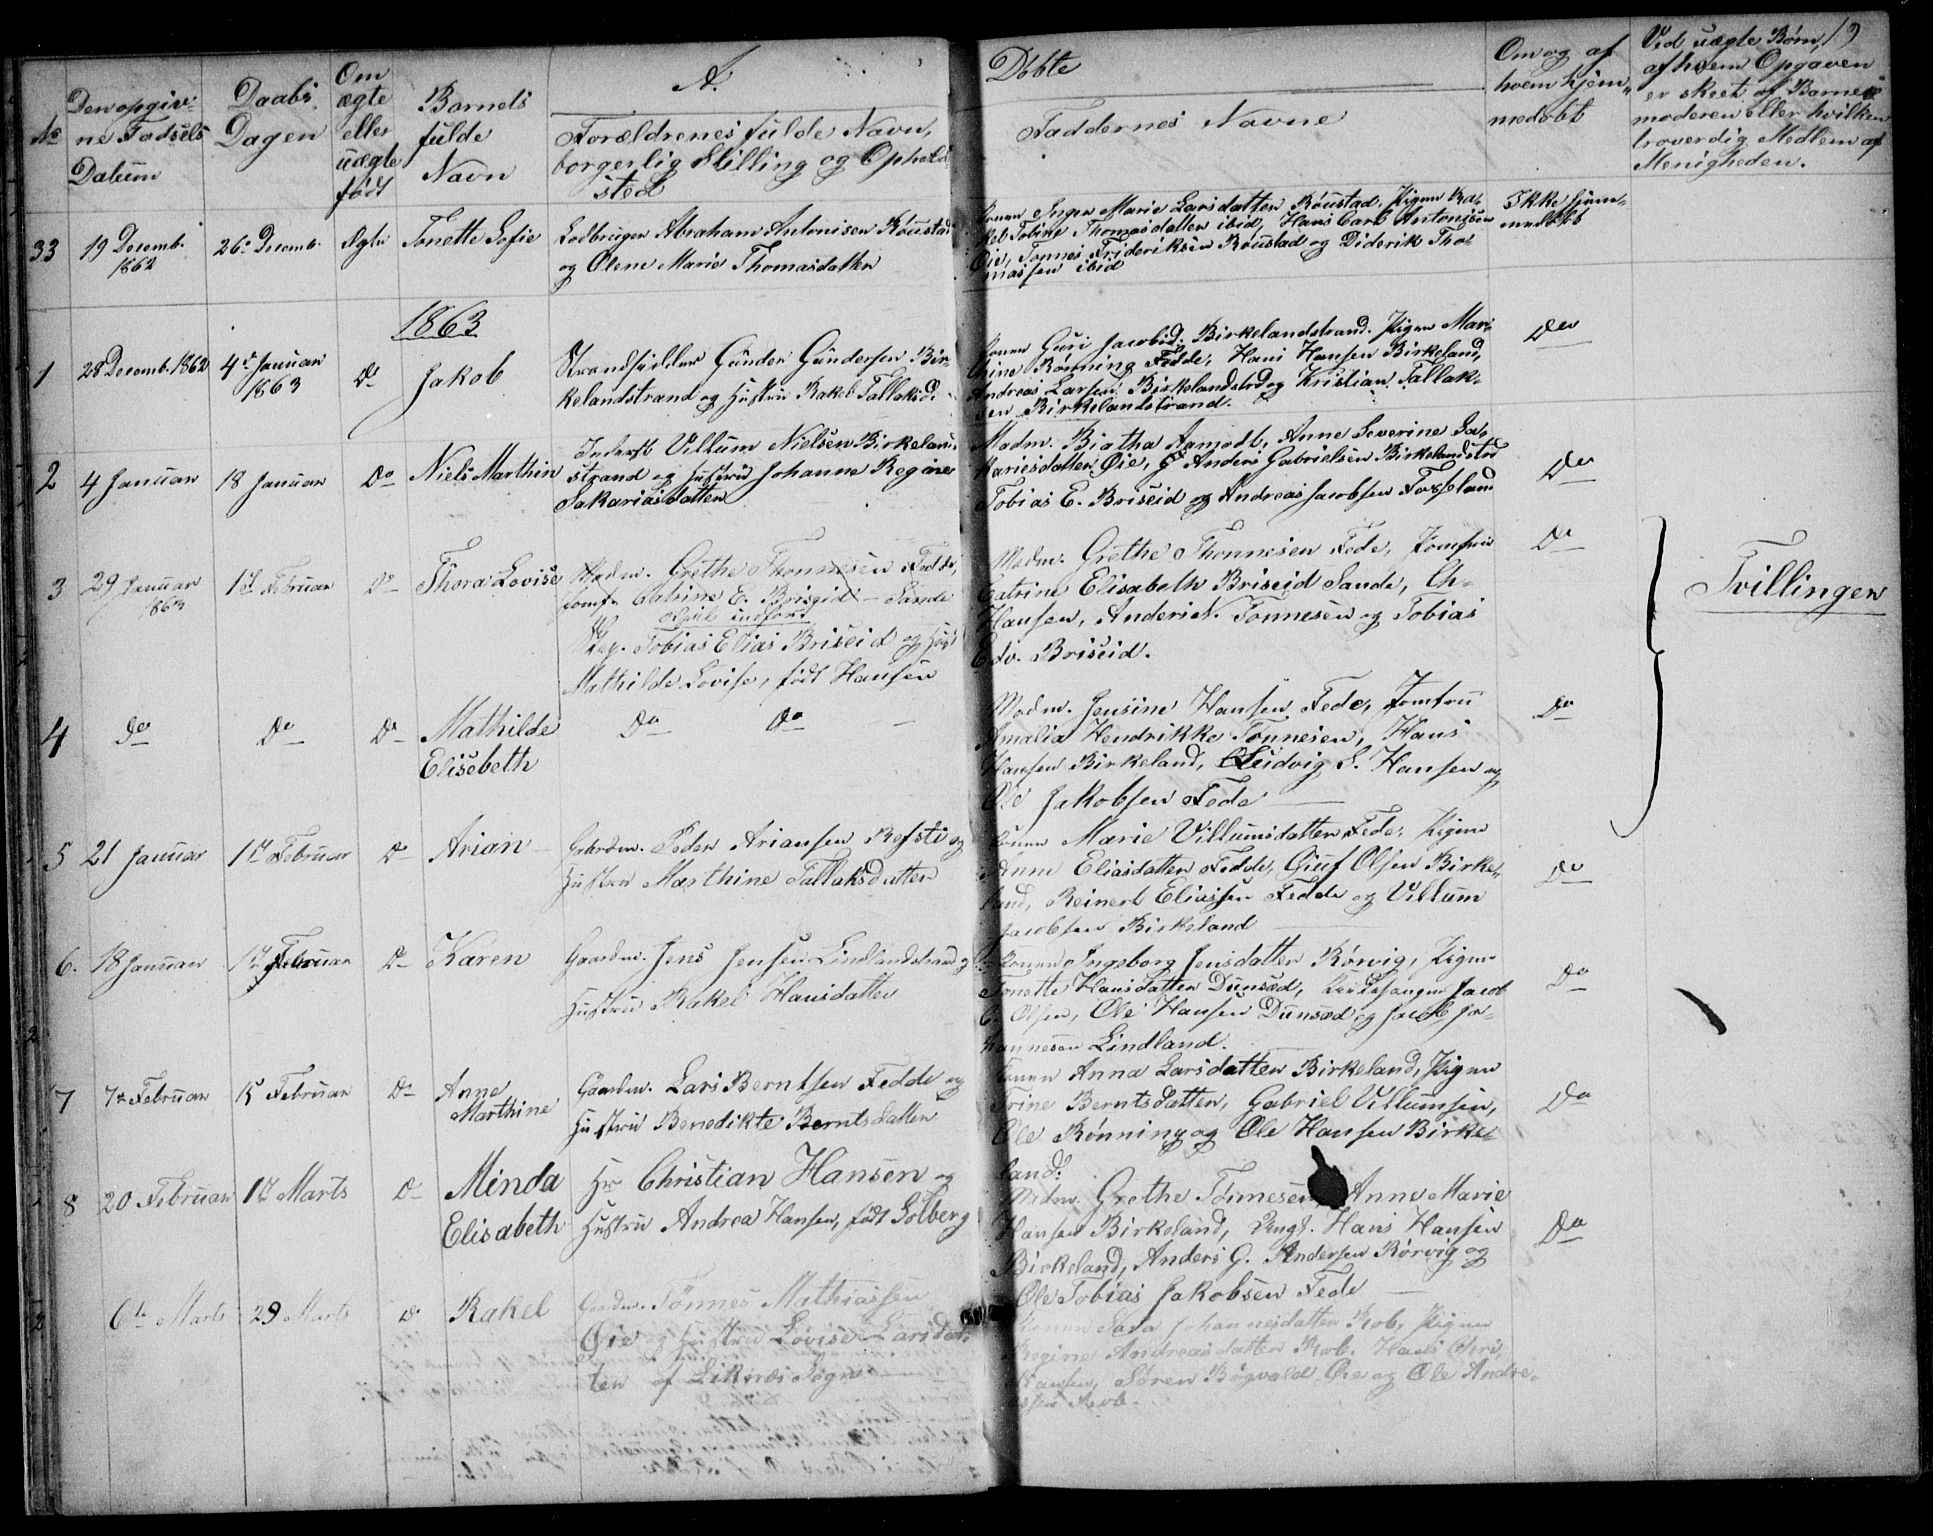 A.
Døbte
19
No
Den opgiv-
ne Fødsels
Datum
Daabs
Dagen
Om
ægte
eller
uægte
født
Barnets
fulde
Navn
Forældrenes fulde Navn,
borgerlig Stilling og Opholds
sted
Faddernes Navne
Om og af
hvem hjem-
medøbt
Ved uægte Børn,
af hvem Opgaven
er skeet af Barne
moderen eller hvilken
troverdig Medlem af
Menigheden.
33
19 Decemb.
1862
26 Decemb.
Ægte
Tonette Sofie
Lodbruger Abraham Antonisen Røustad
og Olene Marie Thomasdatter
Konen Inger Marie Larsdatter Røustad, Pigen Ra-
kel Tobine Thomasdatter ibid, Hans Carl Antonisen
Øie, Tønnes Frideriksen Røustad og Diderik Tho-
massen ibid
Ikke hjem-
medøbt
1863
1
28 Decemb. 1862
4de Januar
1863
Do
Jakob
Strandsidder Gunder Gundersen Bir-
kelandstrand og Hustru Rakel Tallaksd.
Konen Guri Jacobsd. Birkelandstrand. Pigen Mar-
thine Rønning Fedde, Hans Hansen Birkeland,
Andreas Larsen Birkelandstrd og Kristian Tallak-
sen Birkelandstrand.
Do
2
4 Januar
18 Januar
Do
Niels Marthin
Inderst Villum Nielsen Birkeland
strand og Hustru Johanne Regine
Sakariasdatter
Madm. Biatha Aamodt, Anne Severine Sa-
kariesdatter Øie, Anders Gabrielsen Birkelandstrd
Tobias E. Briseid og Andreas Jacobsen Fosseland
Do
3
29 Januar
1863
1st Februar
Do
Thora Lovise
Madm. Grethe Thonnesen Fedde,
Jomfr Catrine E. Briseid - Sande
feil indført
Tobias Elias Briseid og Hust
Mathilde Lovise, født Hansen
Madm. Grethe Thonnesen Fede, Jomfru
Catrine Elisabeth Briseid Sande, Ch-
Hansen, Anders N. Tonnesen og Tobias
Edv. Briseid.
Do
Tvillinger
4
Do
Do
Do
Mathilde
Elisebeth
Do Do
Madm. Jensine Hansen Fede, Jomfru
Amalia Hendrikke Tonnesen, Hans
Hansen Birkeland, Ludvig S. Hansen og
Ole Jakobsen Fede
Do
5
21 Januar
1st Februar
Do
Arian
Gaardm. Peder Ariansen Refsti og
Hustru Marthine Tallaksdatter
Konen Marie Villumsdatter Fede, Pigen
Anne Eliasdatter Fedde, Giut Olsen Birke-
land, Reinert Eliassen Fedde og Villum
Jacobsen Birkeland
Do
6.
18 Januar
1st Februar
Do
Karen
Gaardm. Jens Jensen Lindlandstrand og
Hustru Rakel Hansdatter
Konen Ingeborg Jensdatter Rørvig, Pigen
Tonette Hansdatter Dunsæd, Kirkesanger Jacob
C. Olsen, Ole Hansen Dunsæd og Jacob Jo-
hannesen Lindland.
Do
7
7de Februar
15 Februar
Do
Anne
Marthine
Gaardm. Lars Berntsen Fedde og
Hustru Benedikte Berntsdatter
Konen Anna Larsdatter Birkeland, Pigen
Trine Berntsdatter, Gabriel Villumsen,
Ole Rønning og Ole Hansen Birke-
land.
Do
8
20 Februar
1st Marts
Do
Minda
Elisabeth
Hr Christian Hansen og
Hustru Andrea Hansen, født Solberg
Madm. Grethe Tønnesen, Anne Marie
Hansen Birkeland, Ungk. Hans Hansen
Birkeland, Anders G. Andersen Rørvig og
Ole Tobias Jakobsen Fede
Do
6te Marts
29 Marts
Do
Rakel
Gaardm. Tønnes Mathiassen
Øie og Hustru Lovise Larsdat-
ter af Liknæs Sogn
Konen Sara Johannesdatter Rob, Pigen
Regine Andreasdatter Rob. Hans Chri
Hansen, Søren Røgvald Øie og Ole Andre-
assen Rob.